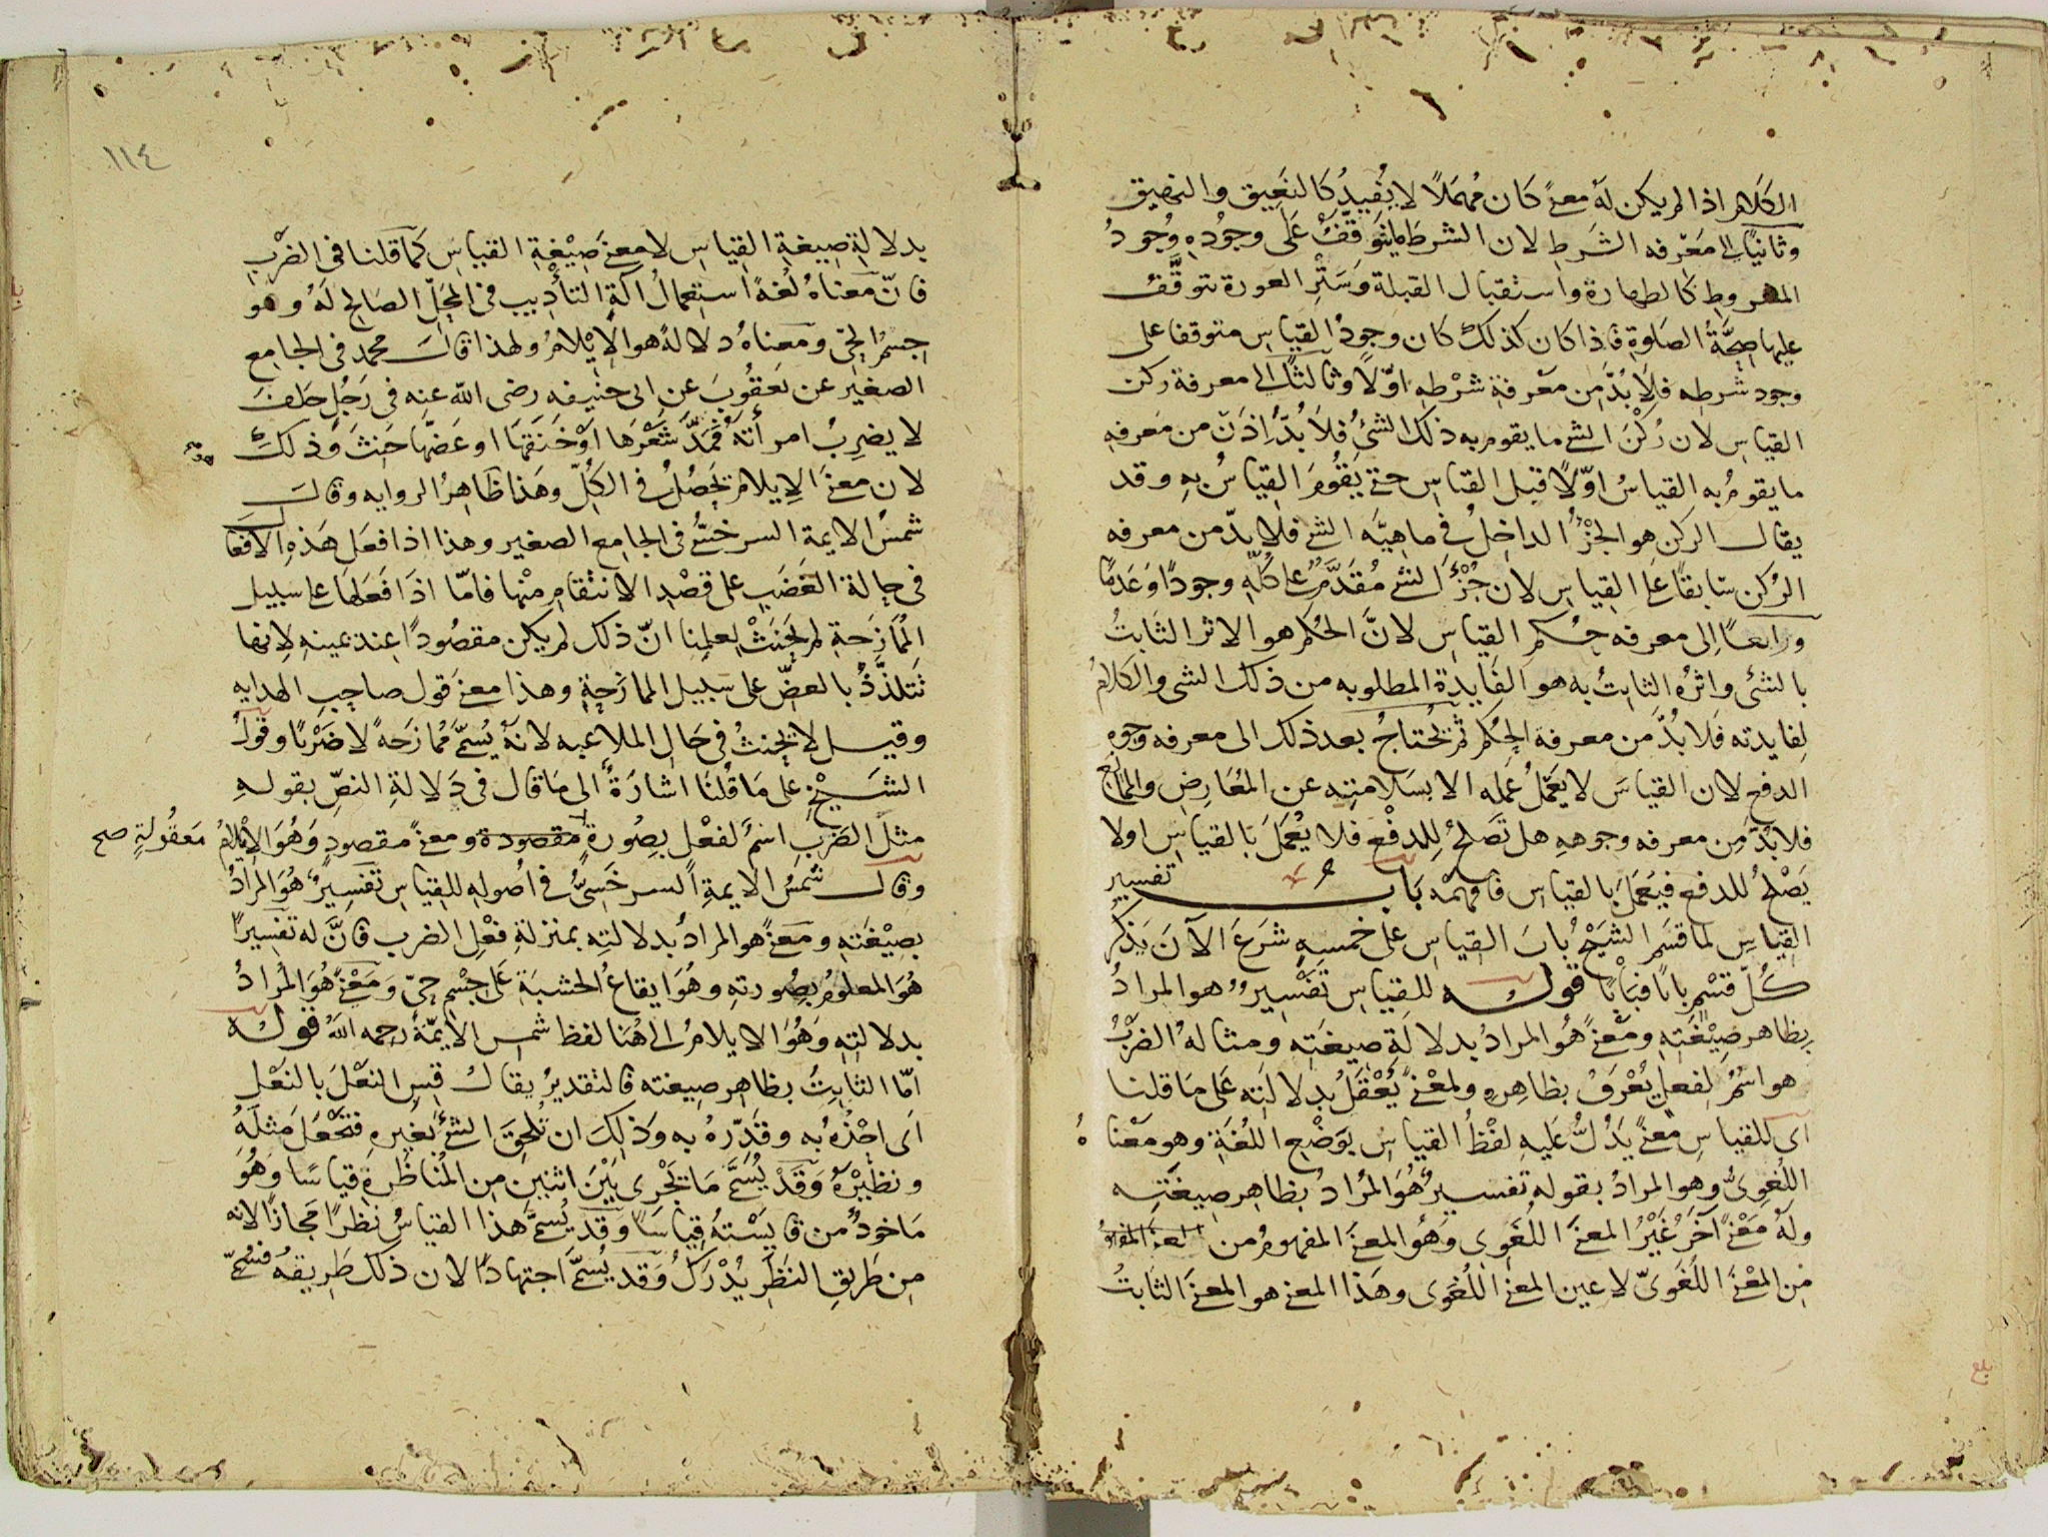 الكلام اذا لم يكن له معنى كان مهملا لا يفيد كالنعيق والنهيق
وثانيا الى معرفه الشرط لان الشرط ما يتوقف على وجوده وجود
المشروط كالطهارة واستقبال القبلة وستر العورة تتوقف
عليها صحة الصلوة فاذا كان كذلك كان وجود القياس متوقفا على
وجود شرطه فلا بد من معرفة شرطه اولا وثالثا الى معرفة ركن
القياس لان ركن الشئ ما يقوم به ذلك الشئ فلا بد اذن من معرفه
ما يقوم به القياس اولا قبل القياس حتى يقوم القياس به وقد
يقال الركن هو الجزء الداخل في ماهيه الشئ فلا بد من معرفه
الركن سابقا على القياس لان جزء الشئ مقدم على كله وجودا وعدما
ورابعا الى معرفه حكم القياس لان الحكم هو الاثر الثابت
بالشئ واثره الثابت به هو الفايدة المطلوبه من ذلك الشى والكلام
لفايدته فلا بد من معرفة الحكم ثم يحتاج بعد ذلك الى معرفه وجوه
الدفع لان القياس لا يعمل عمله الا بسلامته عن المعارض والمانع
فلا بد من معرفه وجوهه هل تصلح للدفع فلا يعمل بالقياس او لا
يصلح للدفع فيعمل بالقياس فافهمه باب تفسير
القياس لما قسم الشيخ باب القياس على خمسه شرع الآن يذكر
كل قسم بابا فبابا قوله للقياس تفسير هو المراد
بظاهر صيغته ومعنى هو المراد بدلالة صيغته ومثاله الضرب
هو اسم لفعل يعرف بظاهره ولمعنى يعقل بدلالته على ما قلنا
اى للقياس معنى يدل عليه لفظ القياس بوضع اللغة وهو معناه
اللغوى وهو المراد بقوله تفسير هو المراد بظاهر صيغته
وله معنى آخر غير المعنى اللغوى وهو المعنى المفهوم من
من المعنى اللغوى لا عين المعنى اللغوى وهذا المعنى هو المعنى الثابت
بلغ
١١٤
بدلالة صيغة القياس لا معنى صيغة القياس كما قلنا فى الضرب
فان معناه لغة استعمال آلة التأديب فى المحل الصالح له وهو
جسم الحى ومعناه دلالة هو الايلام ولهذا قال محمد فى الجامع
الصغير عن يعقوب عن ابى حنيفه رضى الله عنه فى رجل حلف
لا يضرب امرأته فمد شعرها او خنقها او عضها حنث وذلك
لان معنى الايلام يحصل فى الكل وهذا ظاهر الروايه وقال
شمس الايمة السرخسى فى الجامع الصغير وهذا اذا فعل هذه الافعال
فى حالة الغضب على قصد الانتقام منها فاما اذا فعلها على سبيل
الممازحة لم يحنث لعلمنا ان ذلك لم يكن مقصودا عند يمينه لانها
تتلذذ بالعض على سبيل الممازحة وهذا معنى قول صاحب الهدايه
وقيل لا يحنث فى حال الملاعبه لانه يسمى ممازحة لا ضربا وقول
الشيخ على ما قلنا اشارة الى ما قال فى دلالة النص بقوله
مثل الضرب اسم لفعل بصورة مقصودة ومعنى مقصود وهو الايلام معقولة صح
وقال شمس الايمة السرخسى فى اصوله للقياس تفسير هو المراد
بصيغته ومعنى هو المراد بدلالته بمنزلة فعل الضرب فان له تفسيرا
هو المعلوم بصورته وهو ايقاع الخشبة على جسم حى ومعنى هو المراد
بدلالته وهو الايلام الى هنا لفظ شمس الايمة رحمه الله قوله
اما الثابت بظاهر صيغته فالتقدير يقال قس النعل بالنعل
اى احذه به وقدره به وذلك ان تلحق الشئ بغيره فتجعل مثله
ونظيره وقد يسمى ما يجرى بين اثنين من المناظرة قياسا وهو
ماخوذ من قايسته قياسا وقد يسمى هذا القياس نظرا مجازا لانه
من طريق النظر يدرك وقد يسمى اجتهادا لان ذلك طريقه فسمى